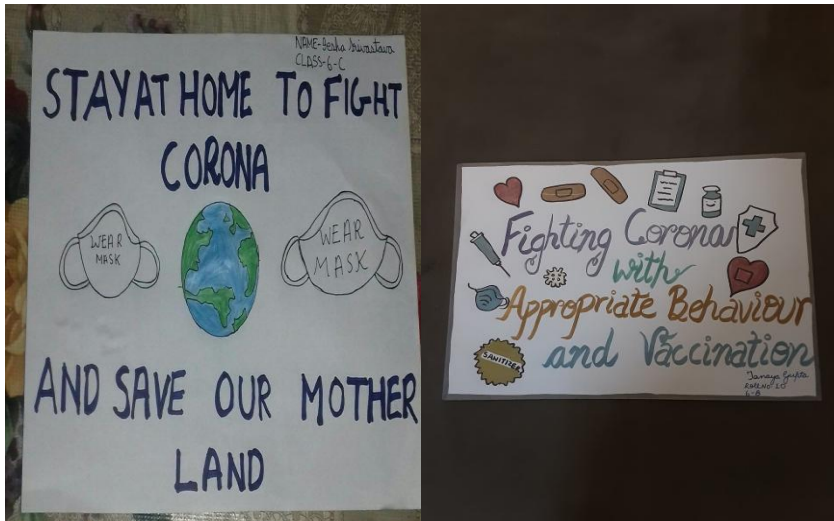 NAME-Yesha Srivastava
CLASS-6-C
STAY AT HOME TO FIGHT
CORONA
WEAR
MASK
WEAR
MASK
AND SAVE OUR MOTHER
LAND
Fighting Corona
with
Appropriate Behaviour
and Vaccination
SANITIZER
Tanaya Gupta
ROLL NO 20
6-B